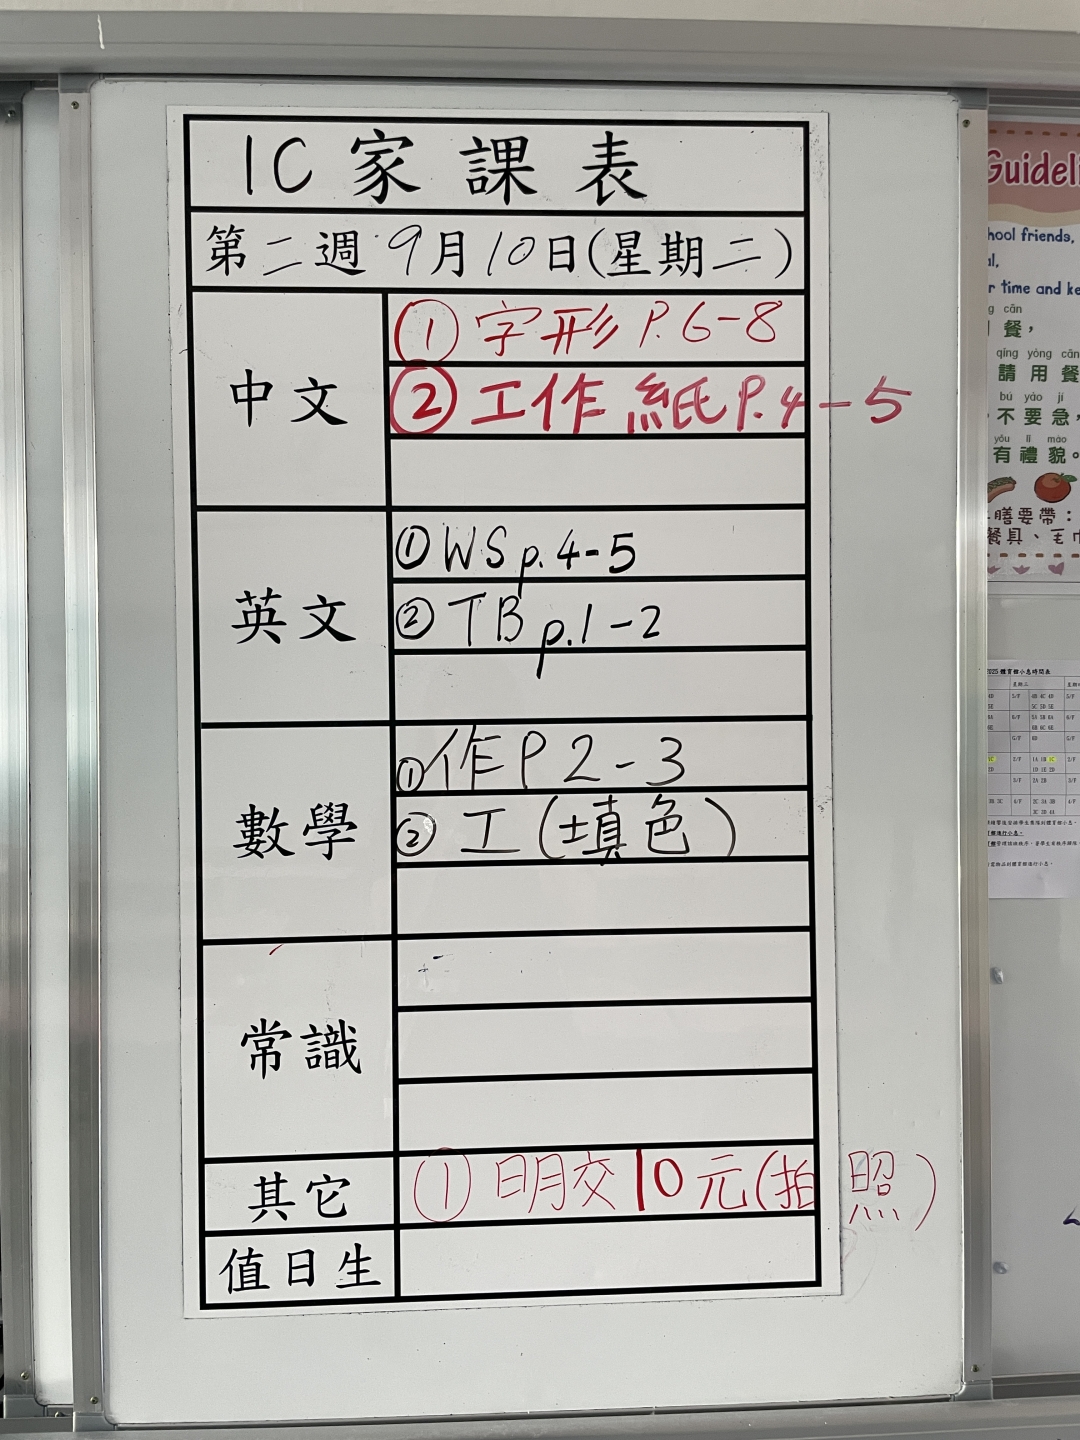 1C 家課表
第二週 9月10日(星期二)
中文
① 字形 P.6-8
② 工作紙 P.4-5
英文
① WS p.4-5
② TB p.1-2
數學
① 作 P 2-3
② 工 (填色)
常識
其它
① 明交10元(拍照)
值日生
Guideli
hool friends,
al,
r time and ke
g cān
餐，
qǐng yòng cān
請用餐
bú yào jí
不要急，
yǒu lǐ mào
有禮貌。
膳要帶：
餐具、毛巾
2025 體育館小息時間表